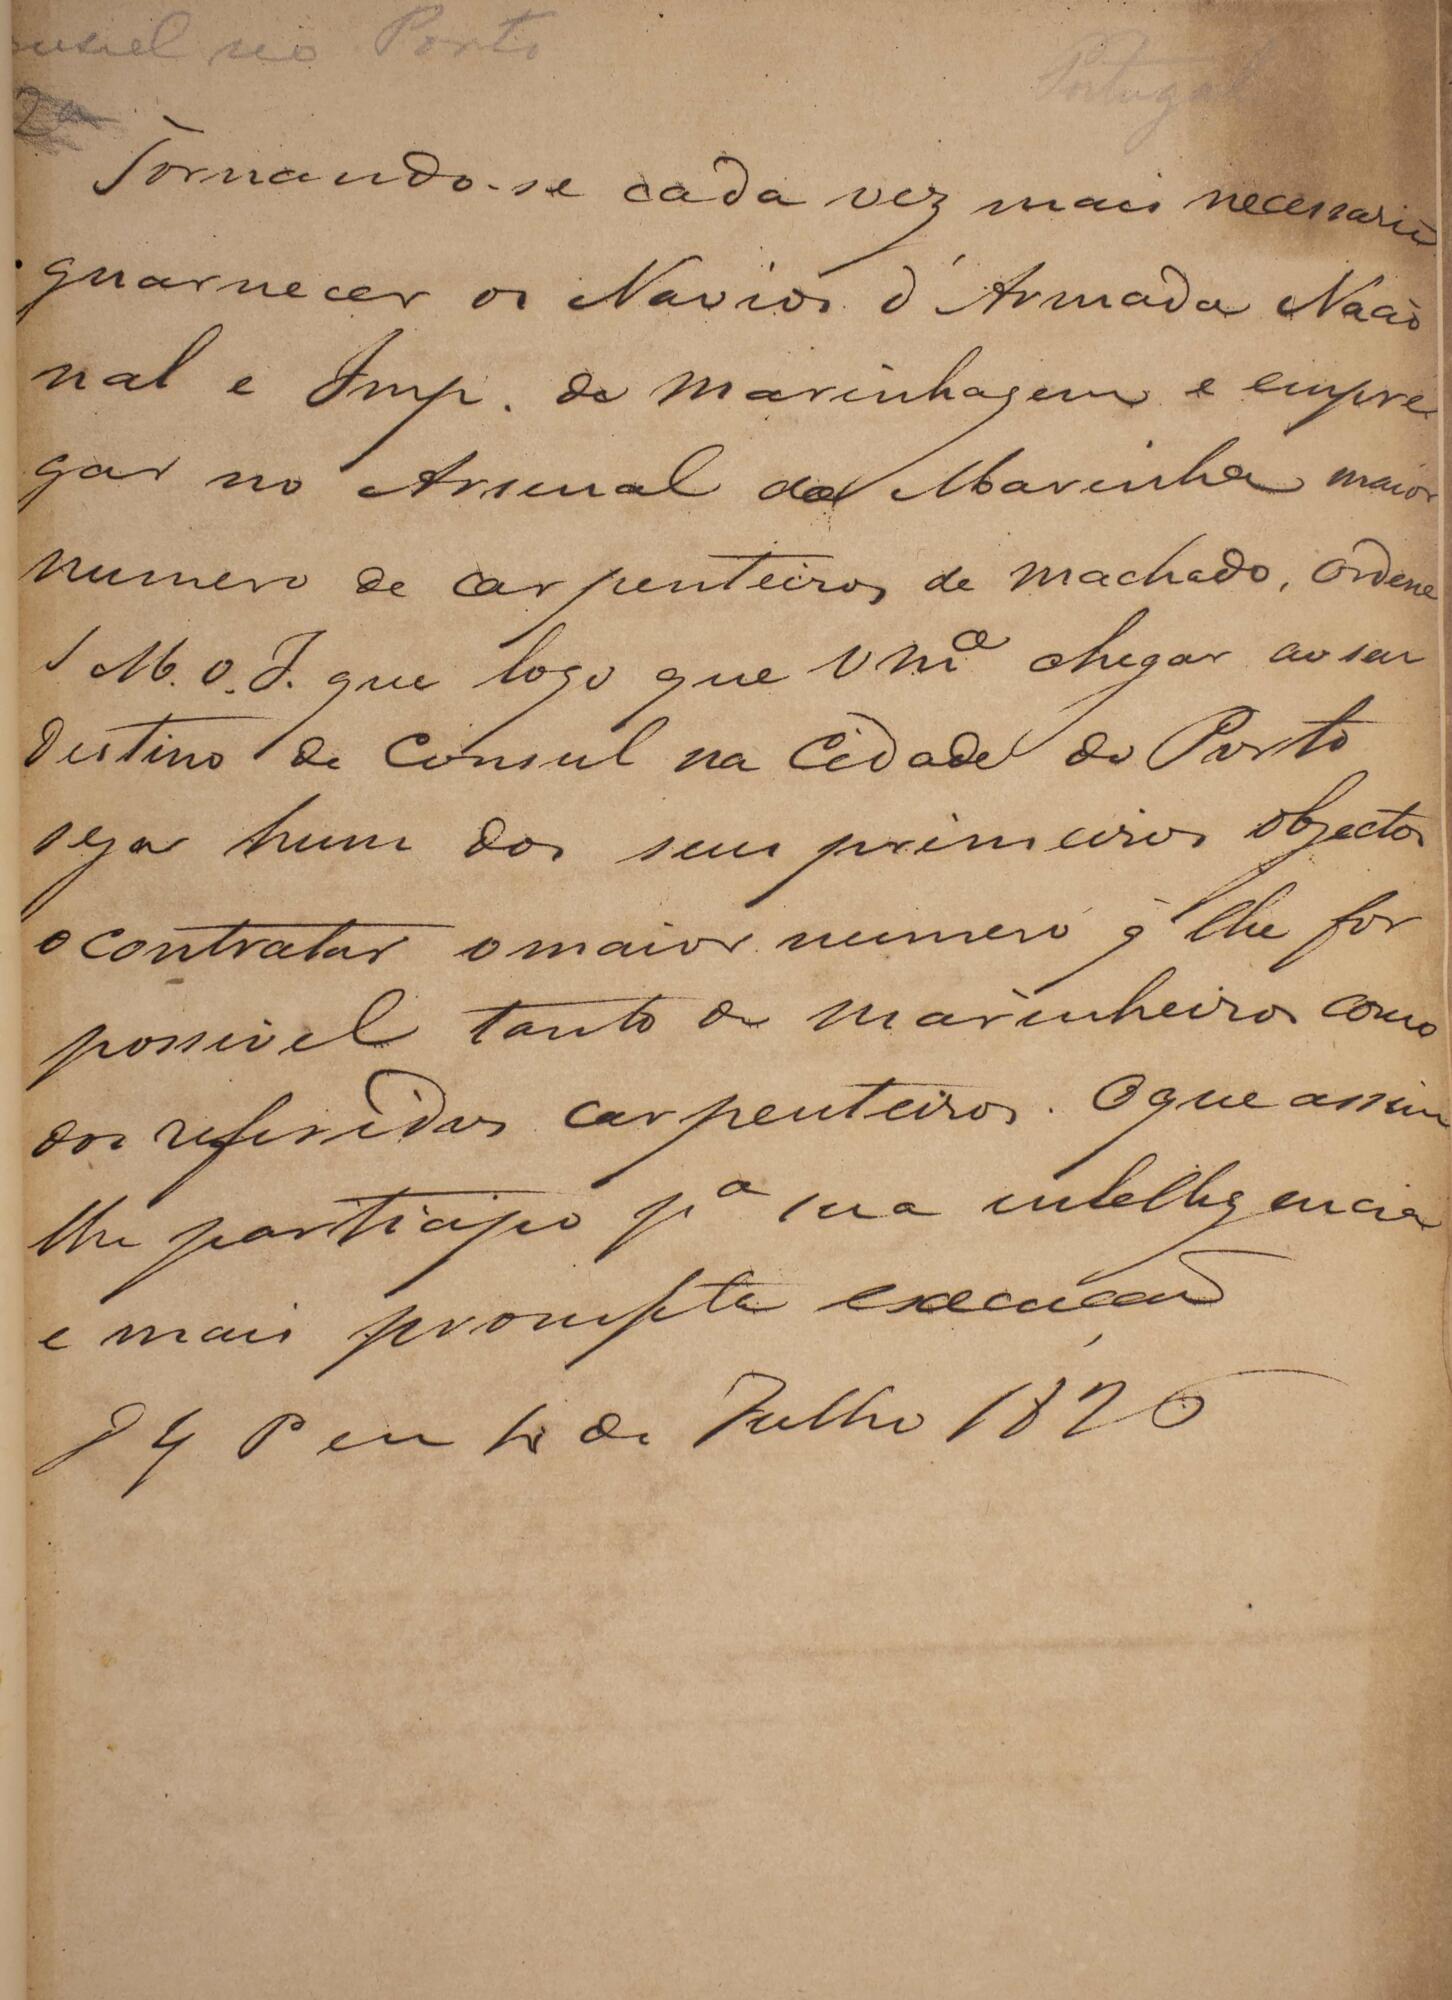 onsul no Porto
Portugal
2ª
Tornando-se cada vez mais necessario
guarnecer os Navios d'Armada Nacio
nal e Imp. de marinhagem e empre
gar no Arsenal da Marinha maior
numero de carpenteiros de machado, Ordena
S M. o. I. que logo que VMce chegar ao seu
destino de Consul na Cidade do Porto
seja hum dos seus primeiros objectos
o contratar o maior numero q' lhe for
possivel tanto de marinheiros como
dos referidos carpenteiros. O que assim
lhe participo pª sua intelligencia
e mais prompta execução
P em de Julho 1826